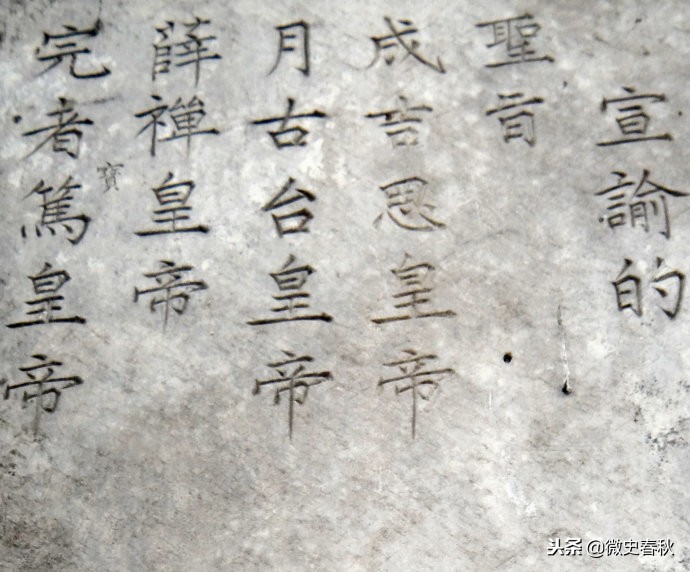 宣諭的
聖旨
成吉思皇帝
月古台皇帝
薛禅皇帝
完者篤皇帝
寳
头条 @微史春秋